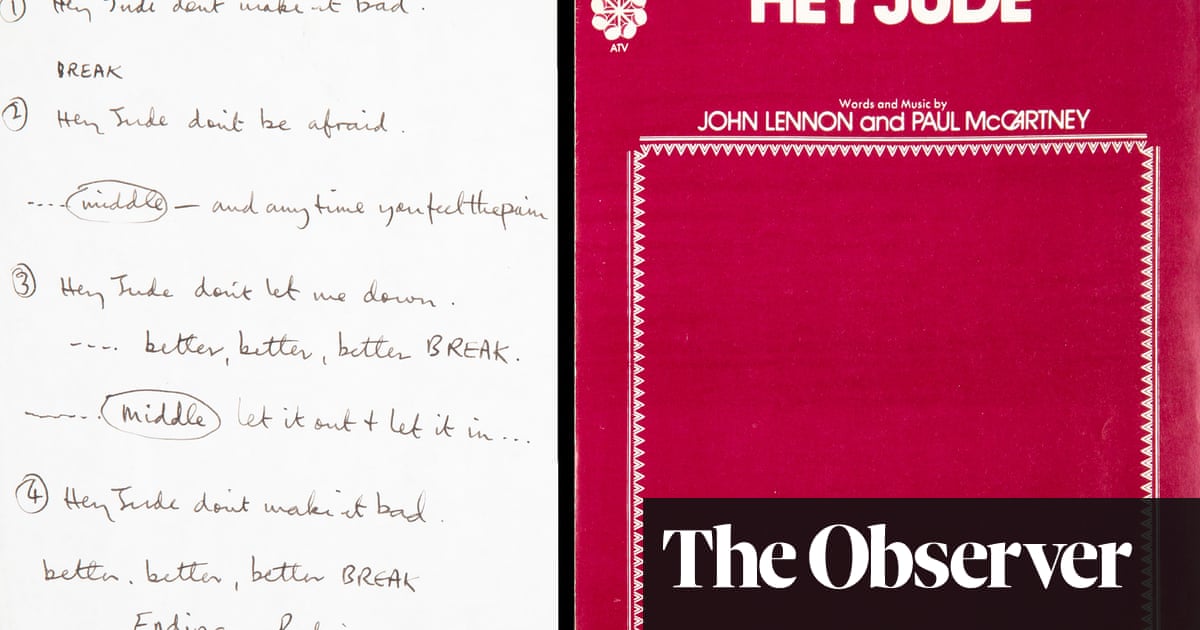 ① Hey Jude don't make it bad.
BREAK
② Hey Jude don't be afraid.
---- middle — and any time you feel the pain
③ Hey Jude don't let me down.
---- better, better, better BREAK.
middle let it out + let it in...
④ Hey Jude don't make it bad.
better, better, better BREAK
Ending
HEY JUDE
ATV
Words and Music by
JOHN LENNON and PAUL McCARTNEY
The Observer